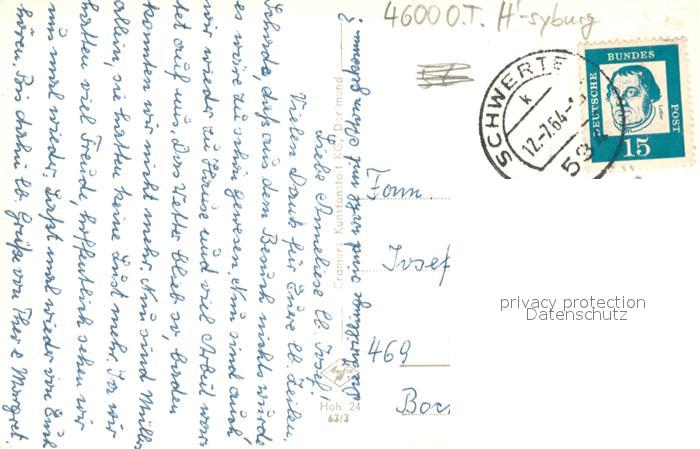 46000.T. H'-syburg
SCHWERTE
k
12.-7.64.-
584
DEUTSCHE BUNDES POST
Luther
15
Liebe Anneliese, lb. Josef!
Vielen Dank für Eure lb. Zeilen,
Schade, daß aus dem Besuch nichts wurde
es wäre zu schön gewesen. Nun sind auch
wir wieder zu Hause und viel Arbeit war-
tet auf uns. Das Wetter blieb so, baden
konnten wir nicht mehr. Nun sind Müllers
allein, sie hatten keine Lust mehr. Ja wir
hatten viel Freude, hoffentlich sehen wir
uns mal wieder. Laßt mal wieder von Euch
hören. Bis dahin lb. Grüße von Theo & Margret.
Cramers Kunstanstalt KG, Dortmund
Hoh 24
63/3
Fam.
Josef
469
Boc
privacy protection
Datenschutz